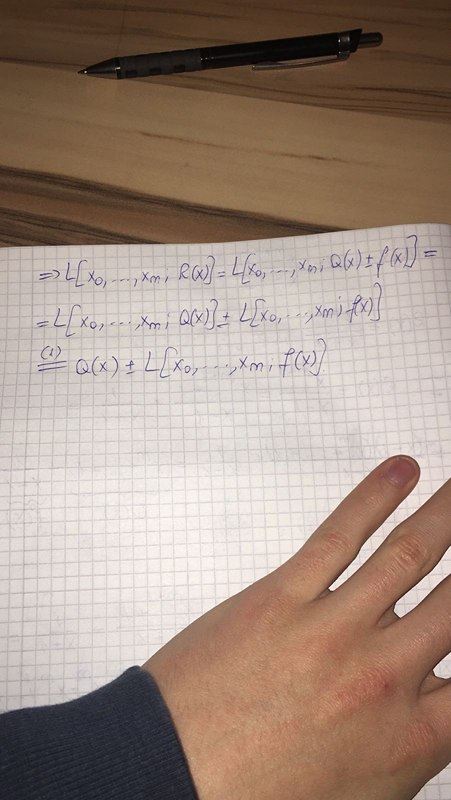 ⇒ L[x₀, ..., xₙ; R(x)] = L[x₀, ..., xₙ; Q(x) ± f(x)] =
= L[x₀, ..., xₙ; Q(x)] ± L[x₀, ..., xₙ; f(x)]
(1)
= Q(x) ± L[x₀, ..., xₙ; f(x)]